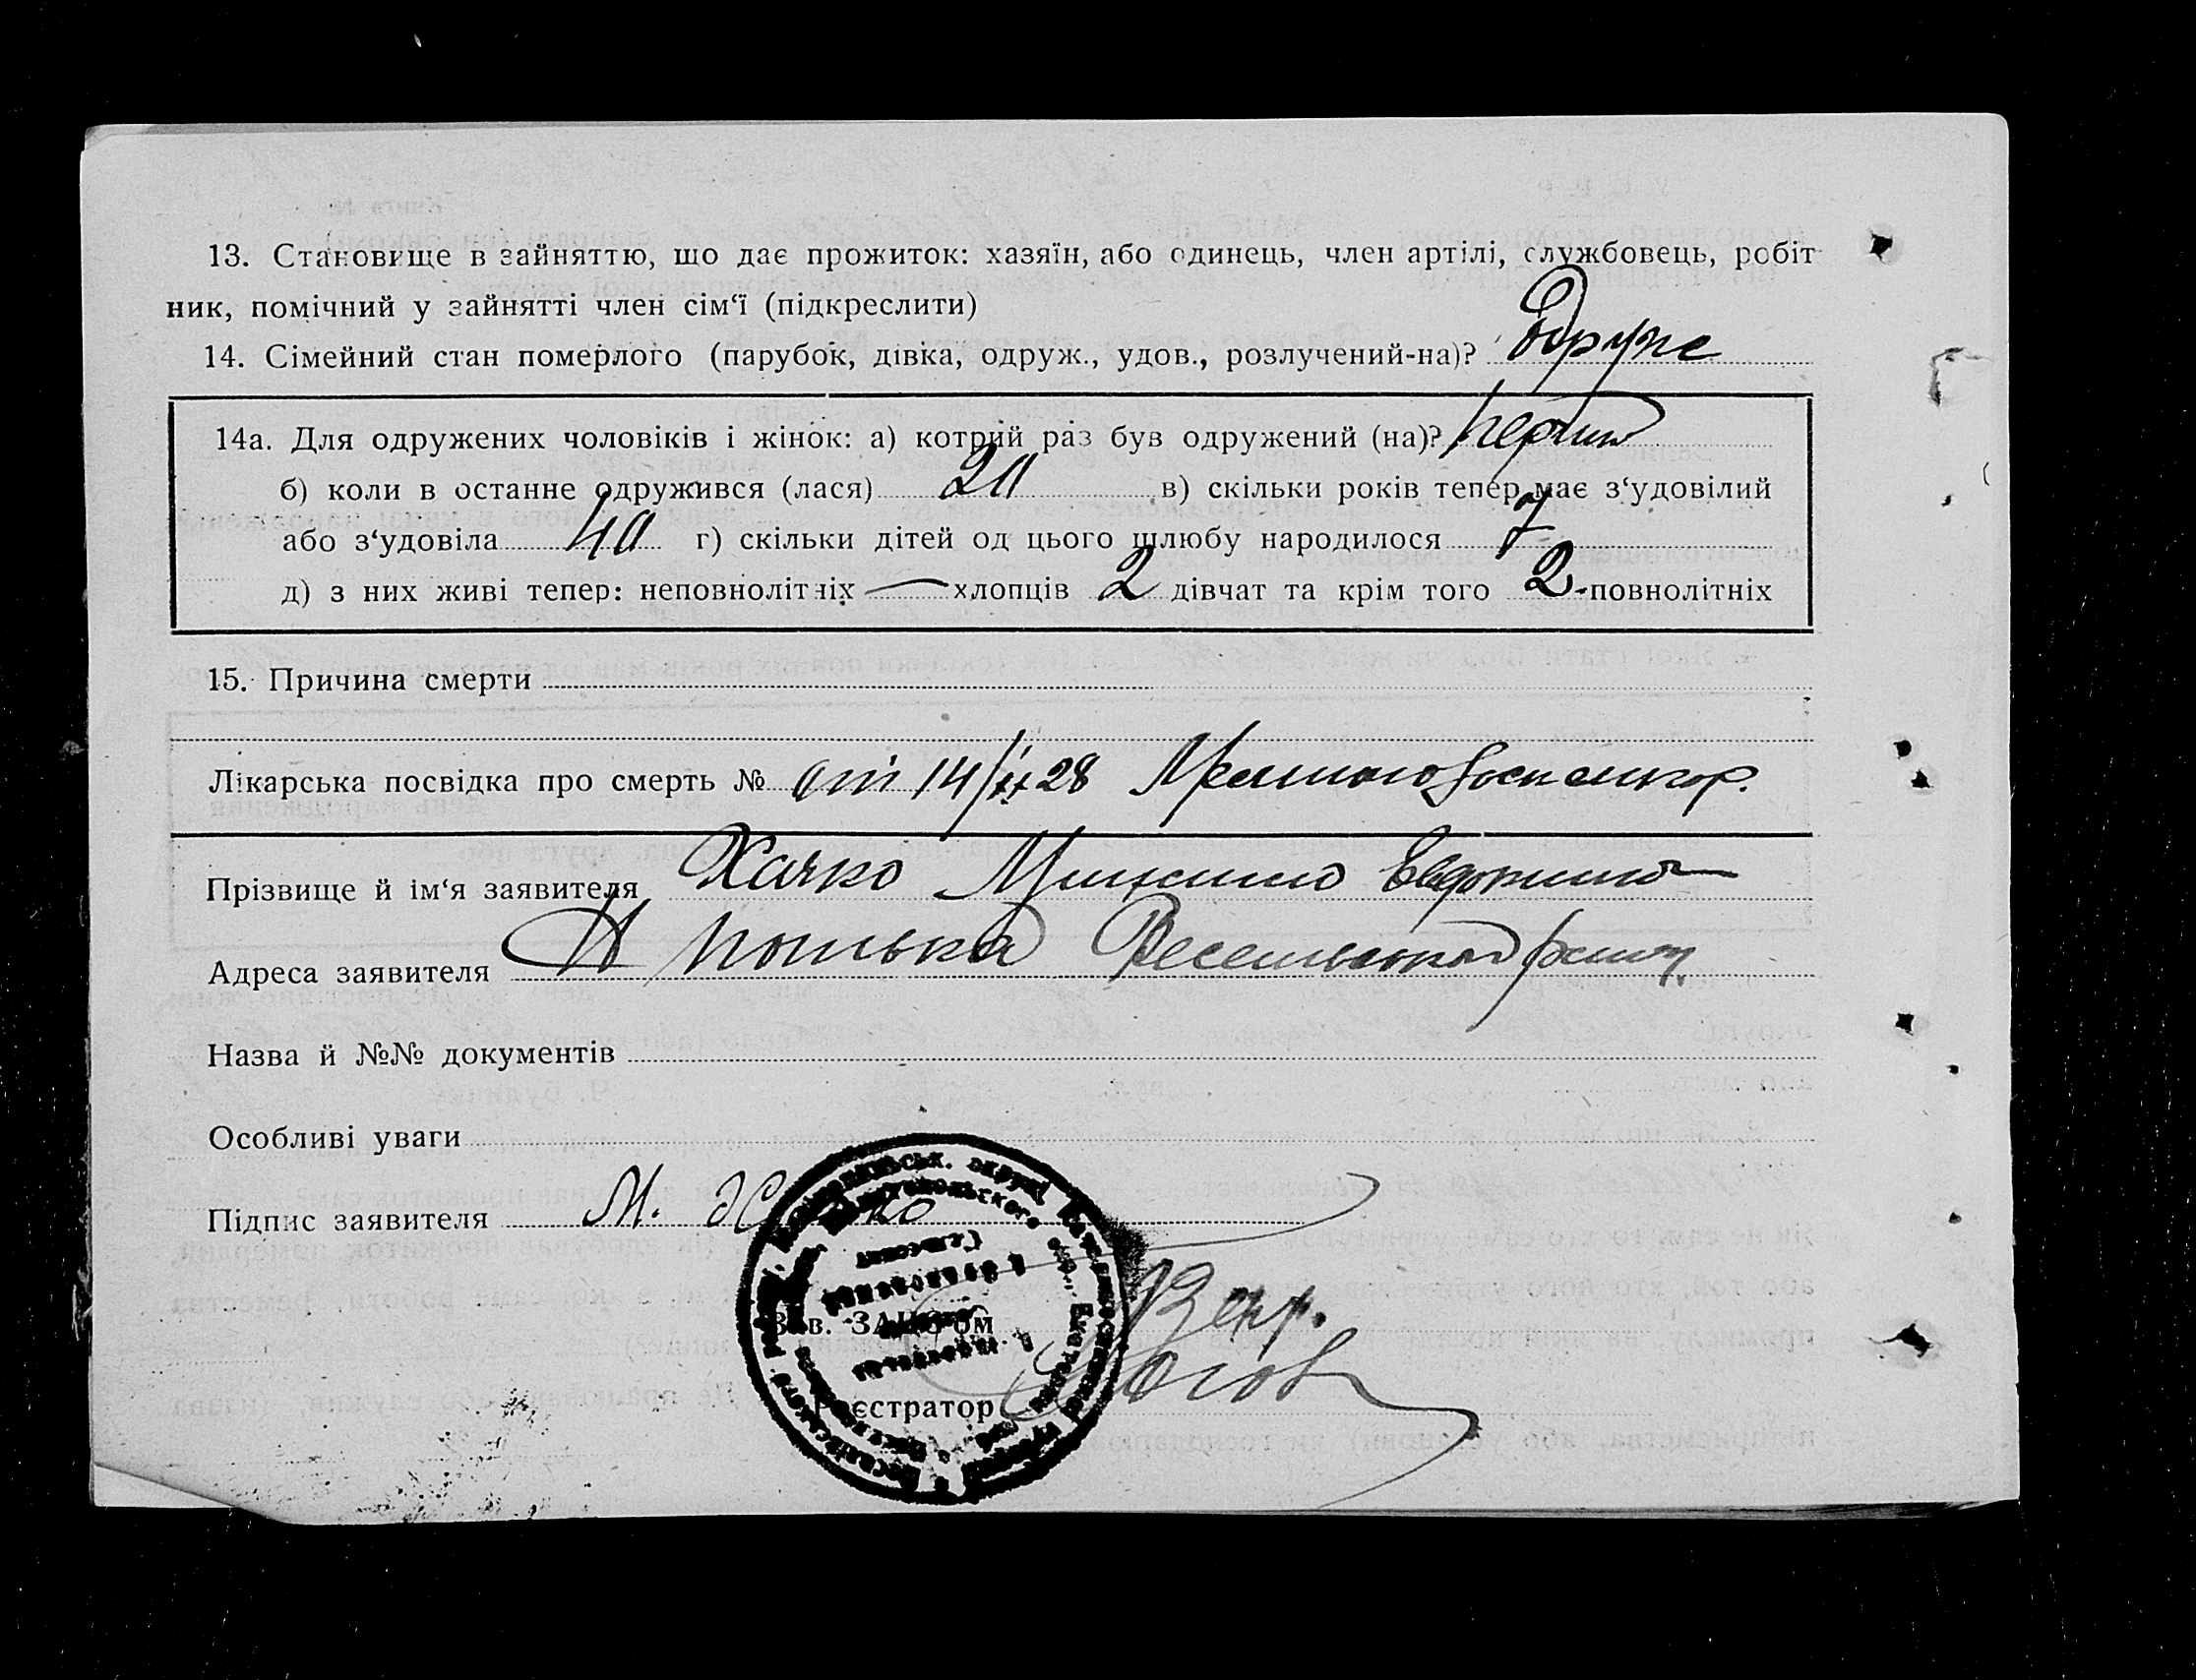 13. Становище в зайняттю, що дає прожиток: хазяїн, або одинець, член артілі, службовець, робіт
ник, помічний у зайнятті член сім‘ї (підкреслити)
14. Сімейний стан померлого (парубок, дівка, одруж., удов., розлучений-на)? Одруже
14а. Для одружених чоловіків і жінок: а) котрий раз був одружений (на)? перший
б) коли в останне одружився (лася) 20 в) скільки років тепер має з‘удовілий
або з‘удовіла 40 г) скільки дітей од цього шлюбу народилося 7
д) з них живі тепер: неповнолітніх — хлопців 2 дівчат та крім того 2 -повнолітніх
15. Причина смерти
Лікарська посвідка про смерть № от 14/ 28
Прізвище й ім‘я заявителя Хачко
Адреса заявителя
Назва й №№ документів
Особливі уваги
Підпис заявителя М.
Зав. ЗАГС‘ом
Реєстратор